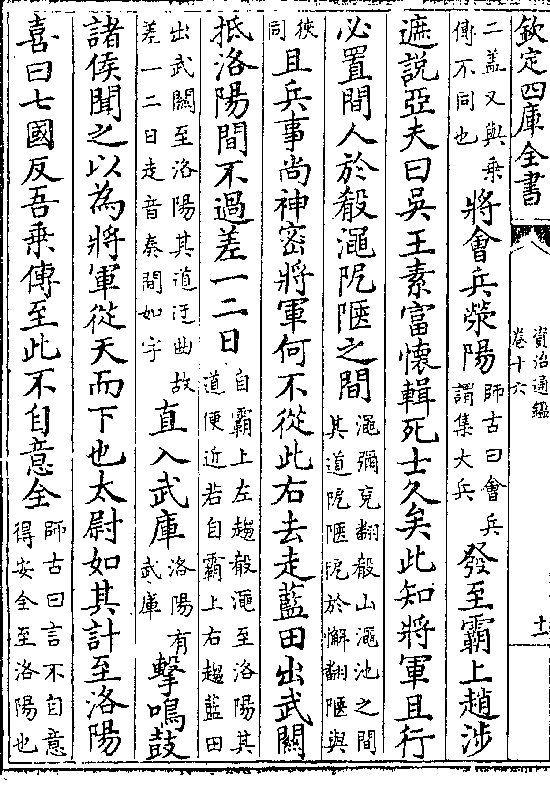 欽定四庫全書
資治通鑑
卷十六
十一
二盖又與乘
傳不同也
將會兵滎陽
師古曰會兵
謂集大兵
發至霸上趙涉
遮說亞夫曰吳王素富懷輯死士久矣此知將軍且行
必置間人於殽澠阨陿之間
澠彌兖翻殽山澠池之間
其道阨陿阨於懈翻陿與
狹
同
且兵事尚神密將軍何不從此右去走藍田出武關
抵洛陽間不過差一二日
自霸上左趨殽澠至洛陽其
道便近若自霸上右趨藍田
出武關至洛陽其道迂曲故
差一二日走音奏間如字
直入武庫
洛陽有
武庫
擊鳴鼓
諸侯聞之以為將軍從天而下也太尉如其計至洛陽
喜曰七國反吾乗傳至此不自意全
師古曰言不自意
得安全至洛陽也